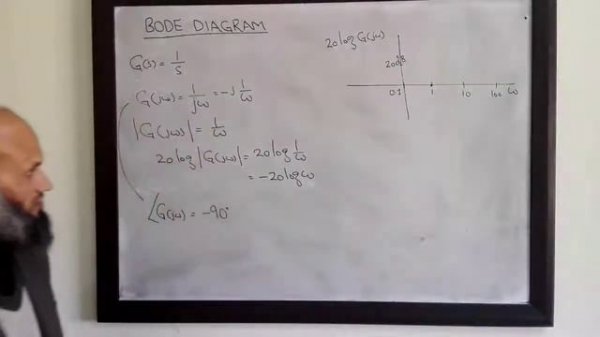 BODE DIAGRAM
G(s) = 1/s
G(jω) = 1/jω = -j 1/ω
|G(jω)| = 1/ω
20log|G(jω)| = 20log 1/ω
= -20logω
∠G(jω) = -90°
20log G(jω)
20dB
0.1 1 10 100 ω